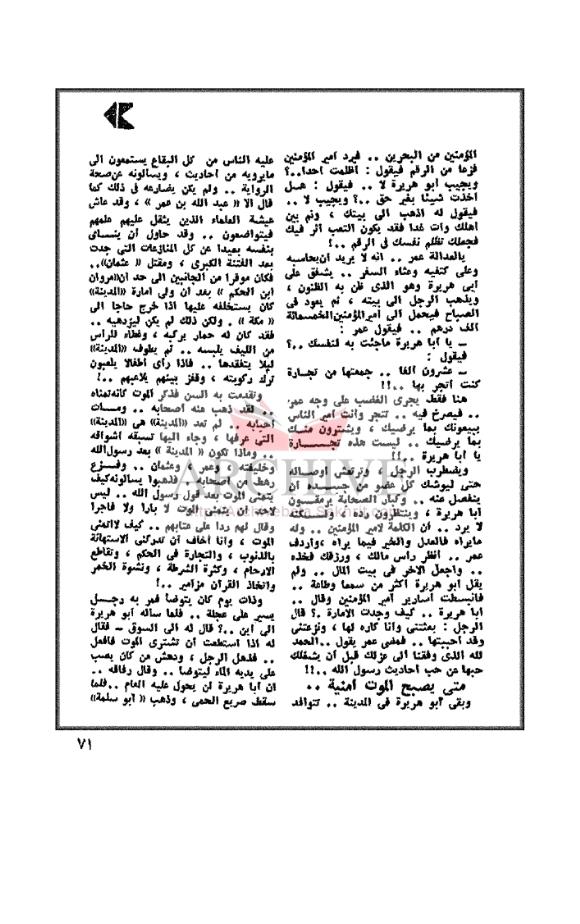 المؤمنين من البحرين .. فيرد أمير المؤمنين
فزعا من الرقم فيقول : أظلمت أحدا..؟
ويجيب أبو هريرة لا .. فيقول : هل
أخذت شيئا بغير حق ..؟ ويجيب لا ..
فيقول له اذهب الى بيتك ، ونم بين
أهلك وات غدا فقد يكون التعب أثر فيك
فجعلك تظلم نفسك في الرقم ..!
يالعدالة عمر .. انه لا يريد أن يحاسبه
وعلى كتفيه وعثاء السفر .. يشفق على
أبى هريرة وهو الذى ظن به الظنون ،
ويذهب الرجل الى بيته ، ثم يعود في
الصباح فيحمل الى أمير المؤمنين الخمسمائة
ألف درهم .. فيقول عمر :
ـ يا أبا هريرة ماجئت به لنفسك ..؟
فيقول :
ـ عشرون ألفا .. جمعتها من تجارة
كنت أتجر بها ..!!
هنا فقط يجرى الغضب على وجه عمر
.. فيصرخ فيه .. تتجر وأنت أمير الناس
يبيعونك بما يرضيك ، ويشترون منك
بما يرضيك .. ليست هذه تجارة
يا أبا هريرة ..!!
ويضطرب الرجل .. وترتعش أوصاله
حتى ليوشك كل عضو من جسده أن
ينفصل عنه .. وكبار الصحابة يرمقون
أبا هريرة ، وينتظرون رده ، ولكنه
لا يرد .. ان الكلمة لأمير المؤمنين .. وله
مايراه فالعدل والخير فيما يراه ، وأردف
عمر .. أنظر رأس مالك ، ورزقك فخذه
.. واجعل الآخر في بيت المال .. ولم
يقل أبو هريرة أكثر من سمعا وطاعة ..
فانبسطت أسارير أمير المؤمنين وقال ..
أبا هريرة .. كيف وجدت الامارة .؟ قال
الرجل : بعثتنى وأنا كاره لها ، ونزعتنى
وقد أحببتها .. فمضى عمر يقول ..الحمد
لله الذى وفقنا الى عزلك قبل أن يشغلك
حبها عن حب أحاديث رسول الله ..!!
متى يصبح الموت أمنية ..
وبقى أبو هريرة في المدينة .. تتوافد
عليه الناس من كل البقاع يستمعون الى
مايرويه من أحاديث ، ويسألونه عن صحة
الرواية .. ولم يكن يضارعه في ذلك كما
قال الا « عبد الله بن عمر » ، وقد عاش
عيشة العلماء الذين يثقل عليهم علمهم
فيتواضعون .. وقد حاول أن ينساى
بنفسه بعيدا عن كل المنازعات التى جدت
بعد الفتنة الكبرى ، ومقتل « عثمان»..
فكان موقرا من الجانبين الى حد أن «مروان
ابن الحكم » بعد أن ولى امارة «المدينة»
كان يستخلفه عليها اذا خرج حاجا الى
« مكة » . ولكن ذلك لم يكن ليزدهيه ..
فقد كان له حمار يركبه ، وغطاء للرأس
من الليف يلبسه .. ثم يطوف «المدينة»
ليلا يتفقدها .. فاذا رأى أطفالا يلعبون
ترك ركوبته ، وقفز بينهم يلاعبهم ..!
وتقدمت به السن فذكر الموت كأنه تمناه
.. لقد ذهب عنه أصحابه .. ومات
أحبابه .. لم تعد «المدينة» هى «المدينة»
التى عرفها ، وجاء اليها تسبقه أشواقه
.. وماذا تكون « المدينة » بعد رسول الله
وخليفته .. وعمر ، وعثمان .. وفزع
رهط من أصحابه .. فذهبوا يسألونه كيف
يتمنى الموت بعد قول رسول الله .. ليس
لأحد أن يتمنى الموت لا بارا ولا فاجرا
وقال لهم ردا على عتابهم .. كيف لاأتمنى
الموت ، وأنا أخاف أن تدركنى الاستهانة
بالذنوب ، والتجارة في الحكم ، وتقاطع
الأرحام ، وكثرة الشرطة ، ونشوة الخمر
واتخاذ القرآن مزامير ..!
وذات يوم كان يتوضأ فمر به رجل
يسير على عجلة .. فلما سأله أبو هريرة
الى أين ..؟ قال له الى السوق ـ فقال
له اذا استطعت أن تشترى الموت فافعل
.. فذهل الرجل ، ودهش من كان يصب
على يديه الماء ليتوضأ .. وقال رفاقه ..
ان أبا هريرة لن يحول عليه العام ..فلما
سقط صريع الحمى ، وذهب « أبو سلمة»
ARCHIVE
٧١